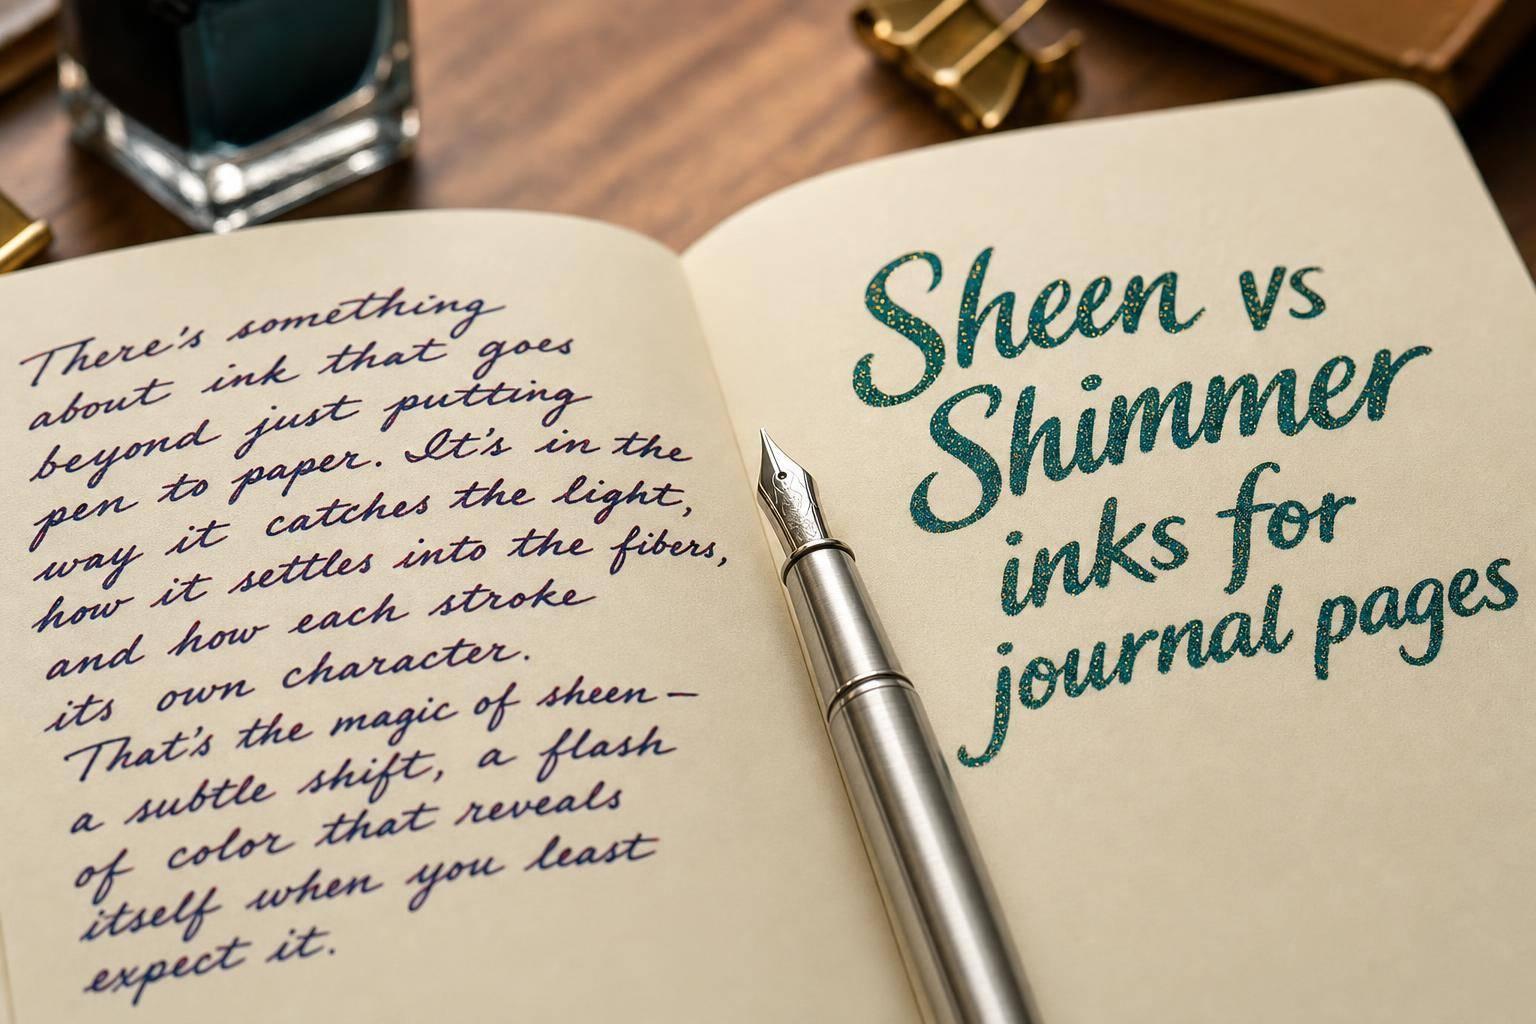 There's something
about ink that goes
beyond just putting
pen to paper. It's in the
way it catches the light,
how it settles into the fibers,
and how each stroke
its own character.
That's the magic of sheen—
a subtle shift, a flash
of color that reveals
itself when you least
expect it.
Sheen vs
Shimmer
inks for
journal pages